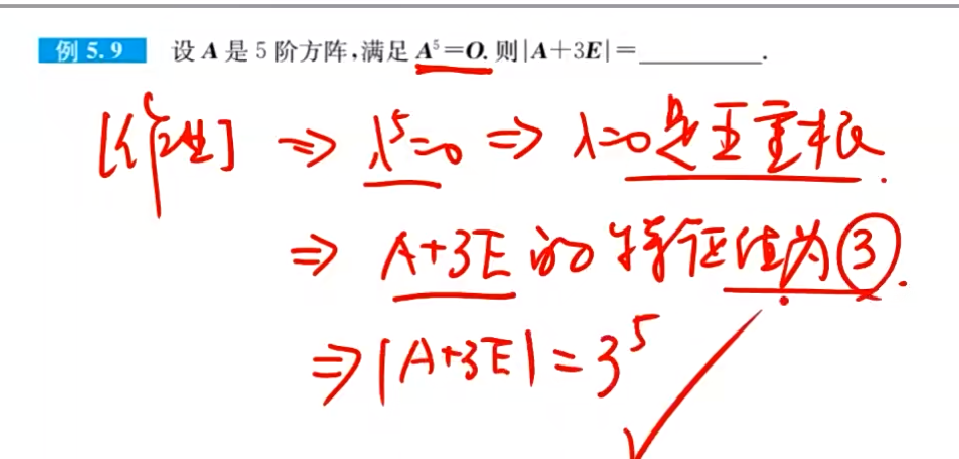 例 5.9 设 A 是 5 阶方阵,满足 A⁵=O. 则|A+3E|=__________.
⇒ λ⁵=0 ⇒ λ=0是五重根.
⇒ A+3E的特征值为③.
⇒|A+3E|=3⁵